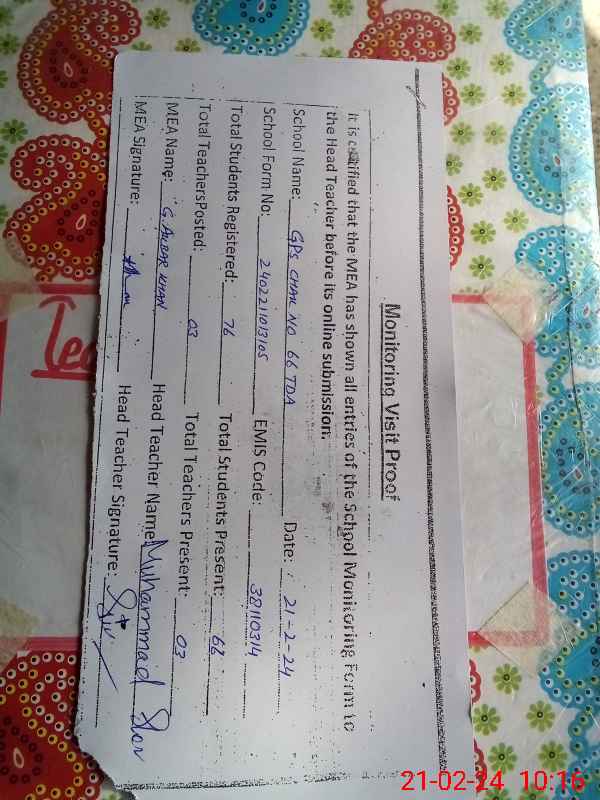 Monitoring Visit Proof
It is certified that the MEA has shown all entries of the School Monitoring Form to
the Head Teacher before its online submission.
School Name: GPS CHAK NO 66 TDA Date: 21-2-24
School Form No: 240221013105 EMIS Code: 38110314
Total Students Registered: 76 Total Students Present: 62
Total Teachers Posted: 03 Total Teachers Present: 03
MEA Name: G. AKBAR KHAN Head Teacher Name: Muhammad
MEA Signature: Head Teacher Signature:
21-02-24 10:16